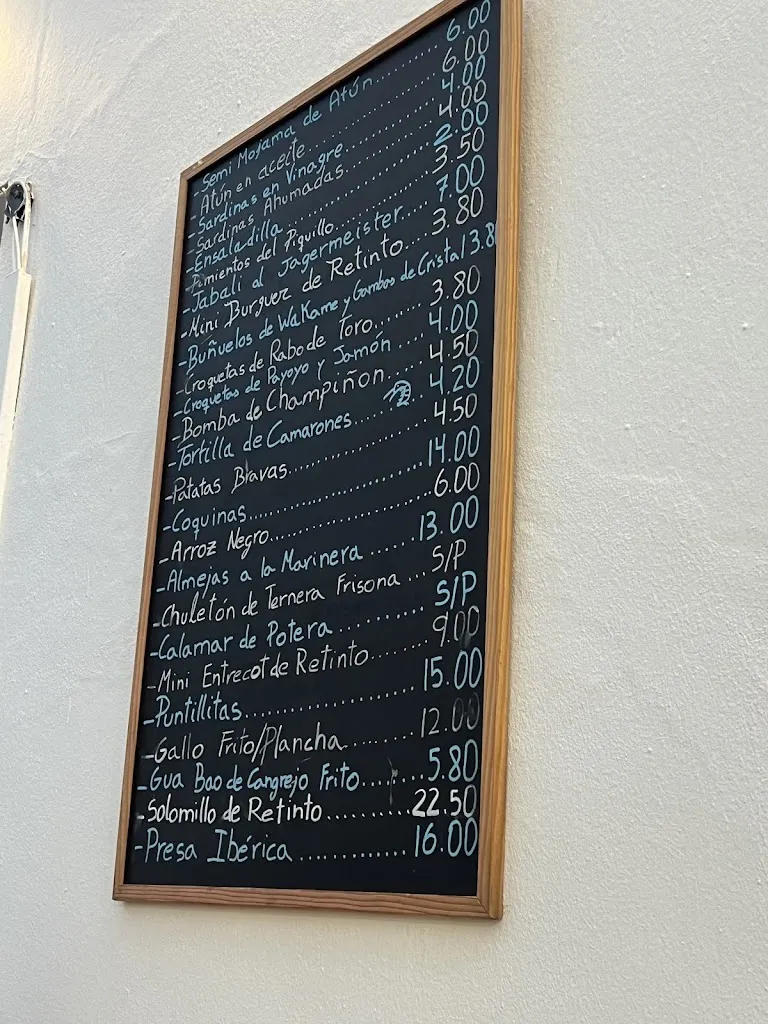 -Semi Mojama de Atún........ 6.00
-Atún en aceite............... 6.00
-Sardinas en Vinagre.......... 4.00
-Sardinas Ahumadas........... 4.00
-Ensaladilla................... 2.00
-Pimientos del Piquillo........ 3.50
-Jabalí al Jagermeister.... 7.00
-Mini Burguer de Retinto... 3.80
-Buñuelos de Wakame y Gambas de Cristal 3.8
-Croquetas de Rabo de Toro...... 3.80
-Croquetas de Payoyo y Jamón .... 4.00
-Bomba de Champiñon...... 4.50
-Tortilla de Camarones........ 4.20
-Patatas Bravas................ 4.50
-Coquinas..................... 14.00
-Arroz Negro.................. 6.00
-Almejas a la Marinera ...... 13.00
-Chuletón de Ternera Frisona ... S/P
-Calamar de Potera ......... S/P
-Mini Entrecot de Retinto....... 9.00
-Puntillitas................... 15.00
-Gallo Frito/Plancha......... 12.00
-Gua Bao de Cangrejo Frito....... 5.80
-Solomillo de Retinto......... 22.50
-Presa Ibérica ............ 16.00